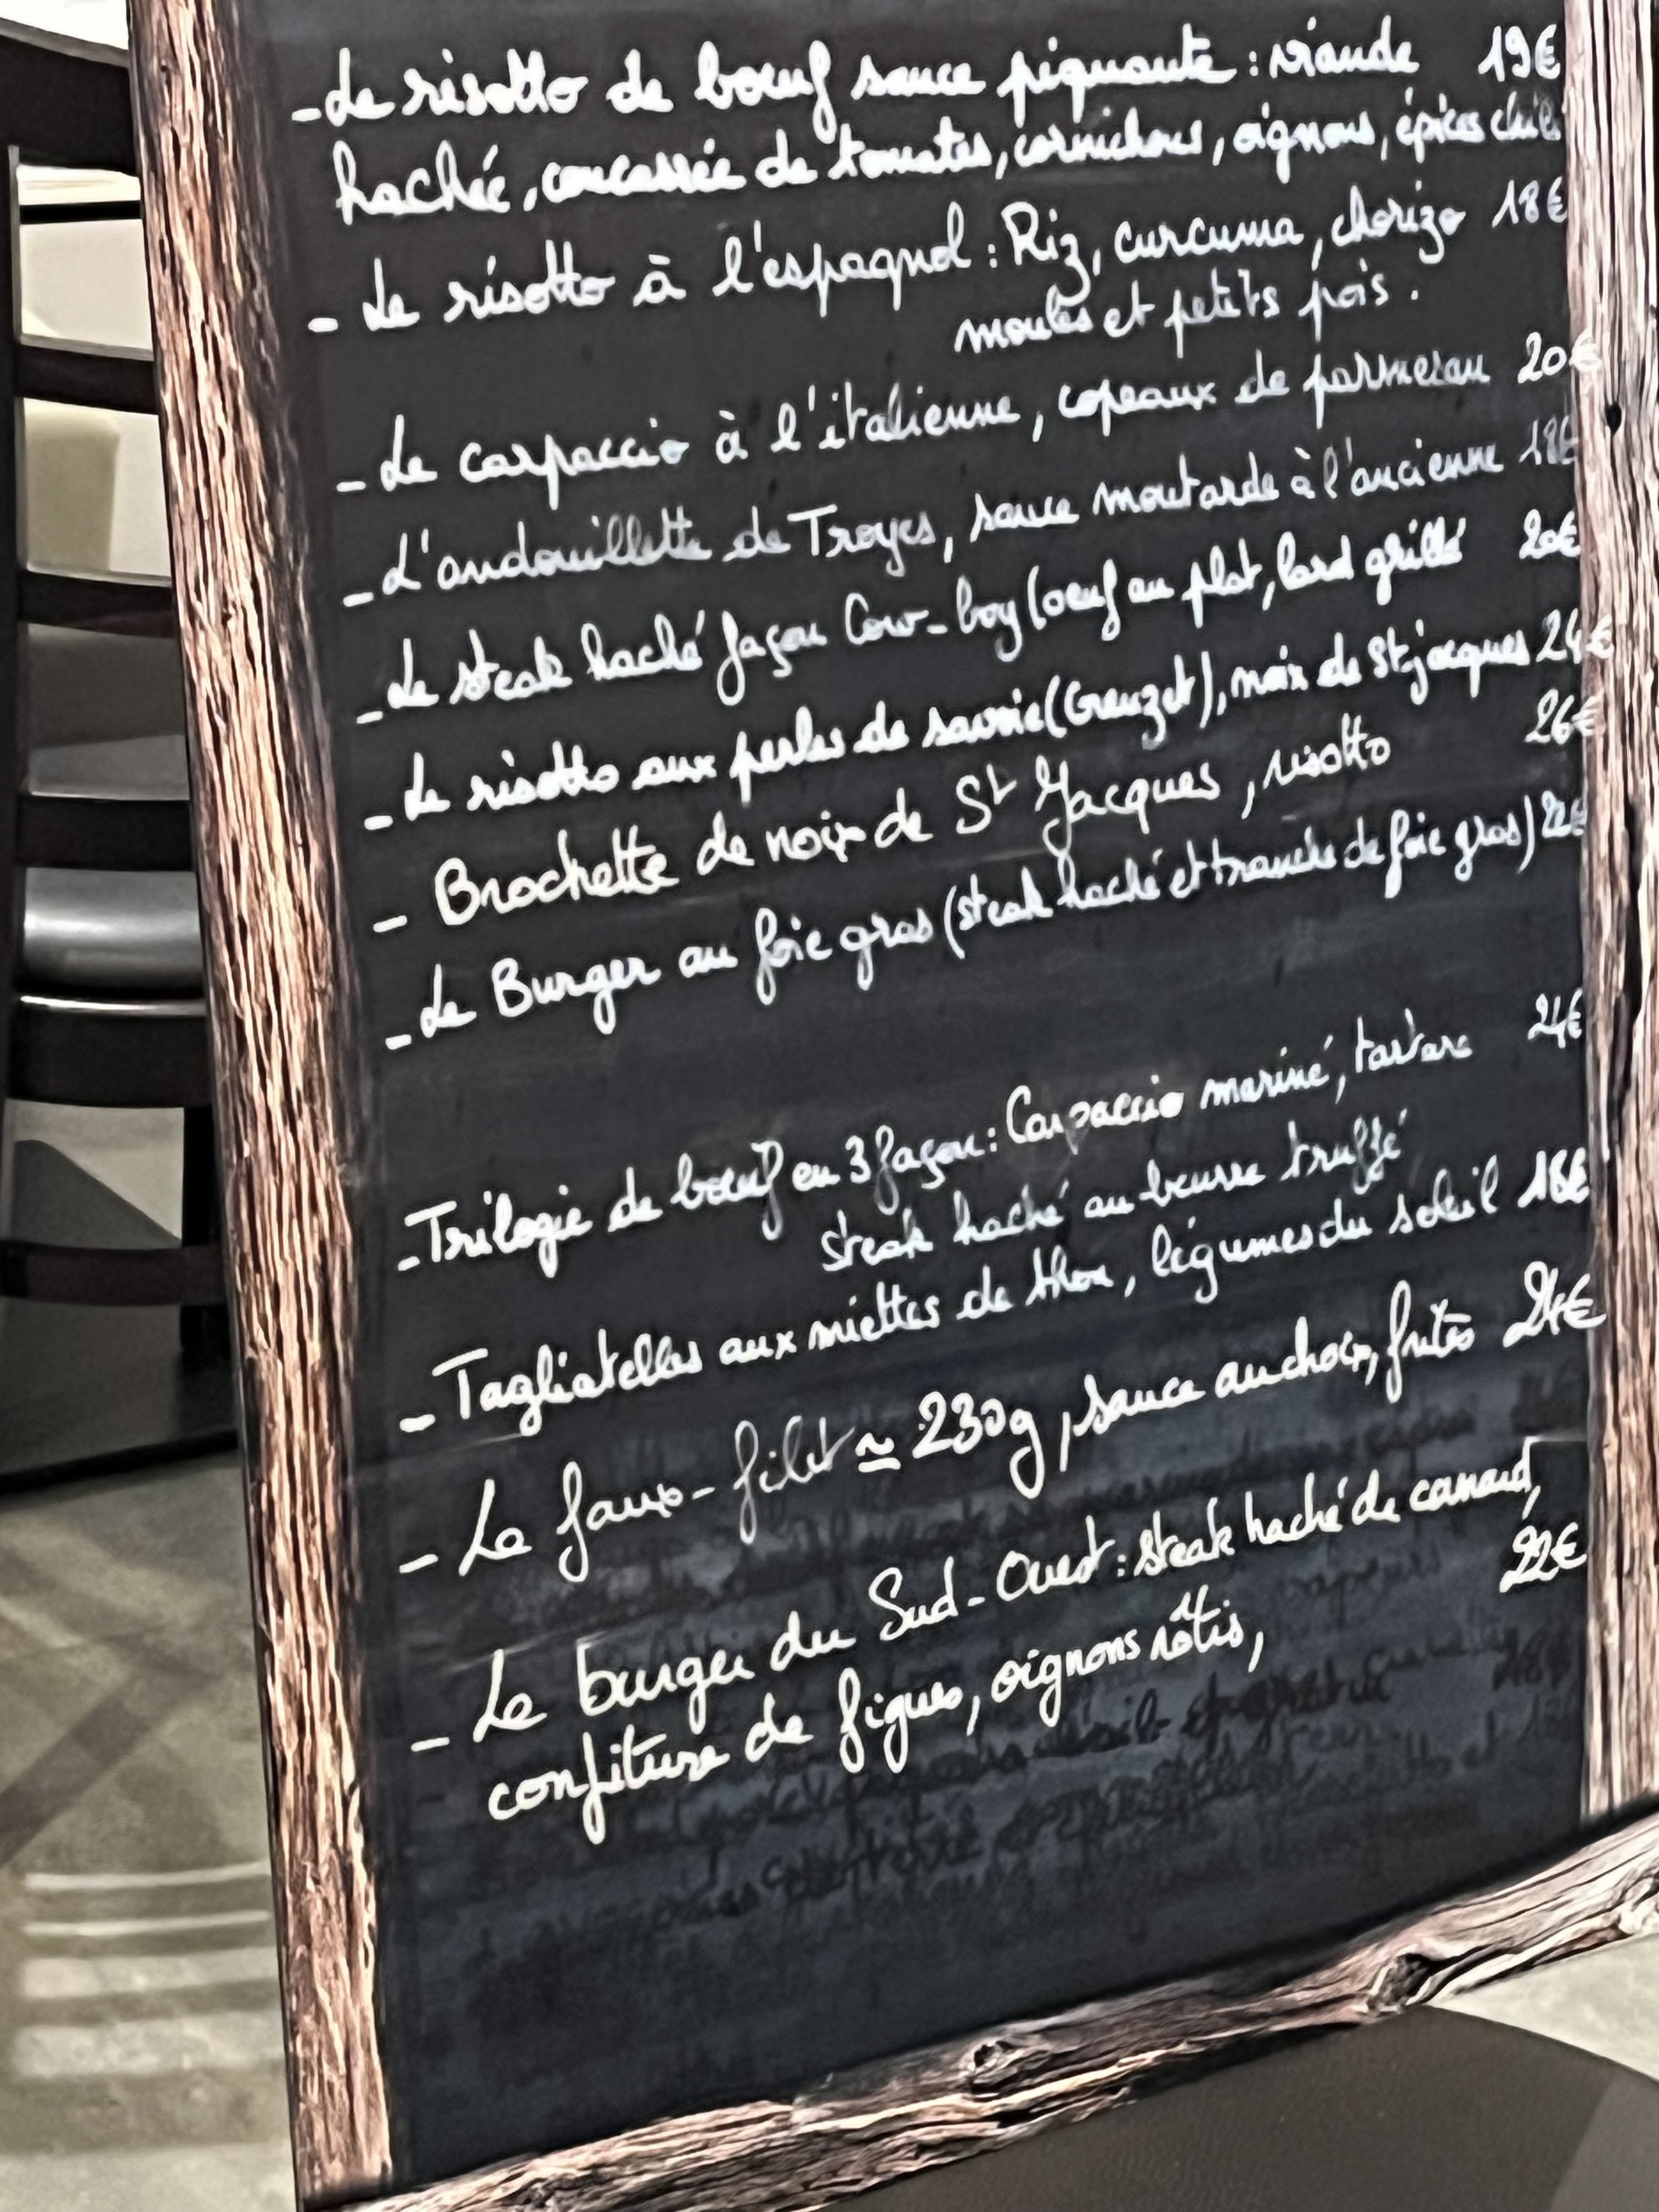 - Le risotto de bœuf sauce piquante : viande 19€
hachée, concassée de tomates, cornichons, oignons, épices chili
- Le risotto à l'espagnol : Riz, curcuma, chorizo 18€
moules et petits pois.
- Le carpaccio à l'italienne, copeaux de parmesan 20€
- L'andouillette de Troyes, sauce moutarde à l'ancienne 18€
- Le steak haché façon Cow-boy (oeuf au plat, lard grillé 20€
- Le risotto aux perles de savoie (Creuzet), noix de St jacques 24€
- Brochette de noix de St Jacques, risotto 26€
- Le Burger au foie gras (steak haché et tranche de foie gras) 22€
- Trilogie de bœuf en 3 façon : Carpaccio mariné, tartare 24€
steak haché au beurre truffé
- Tagliatelles aux miettes de thon, légumes du soleil 16€
- Le faux-filet ≃ 230g, sauce au choix, frites 24€
- Le burger du Sud-Ouest : steak haché de canard,
22€
confiture de figues, oignons rôtis,